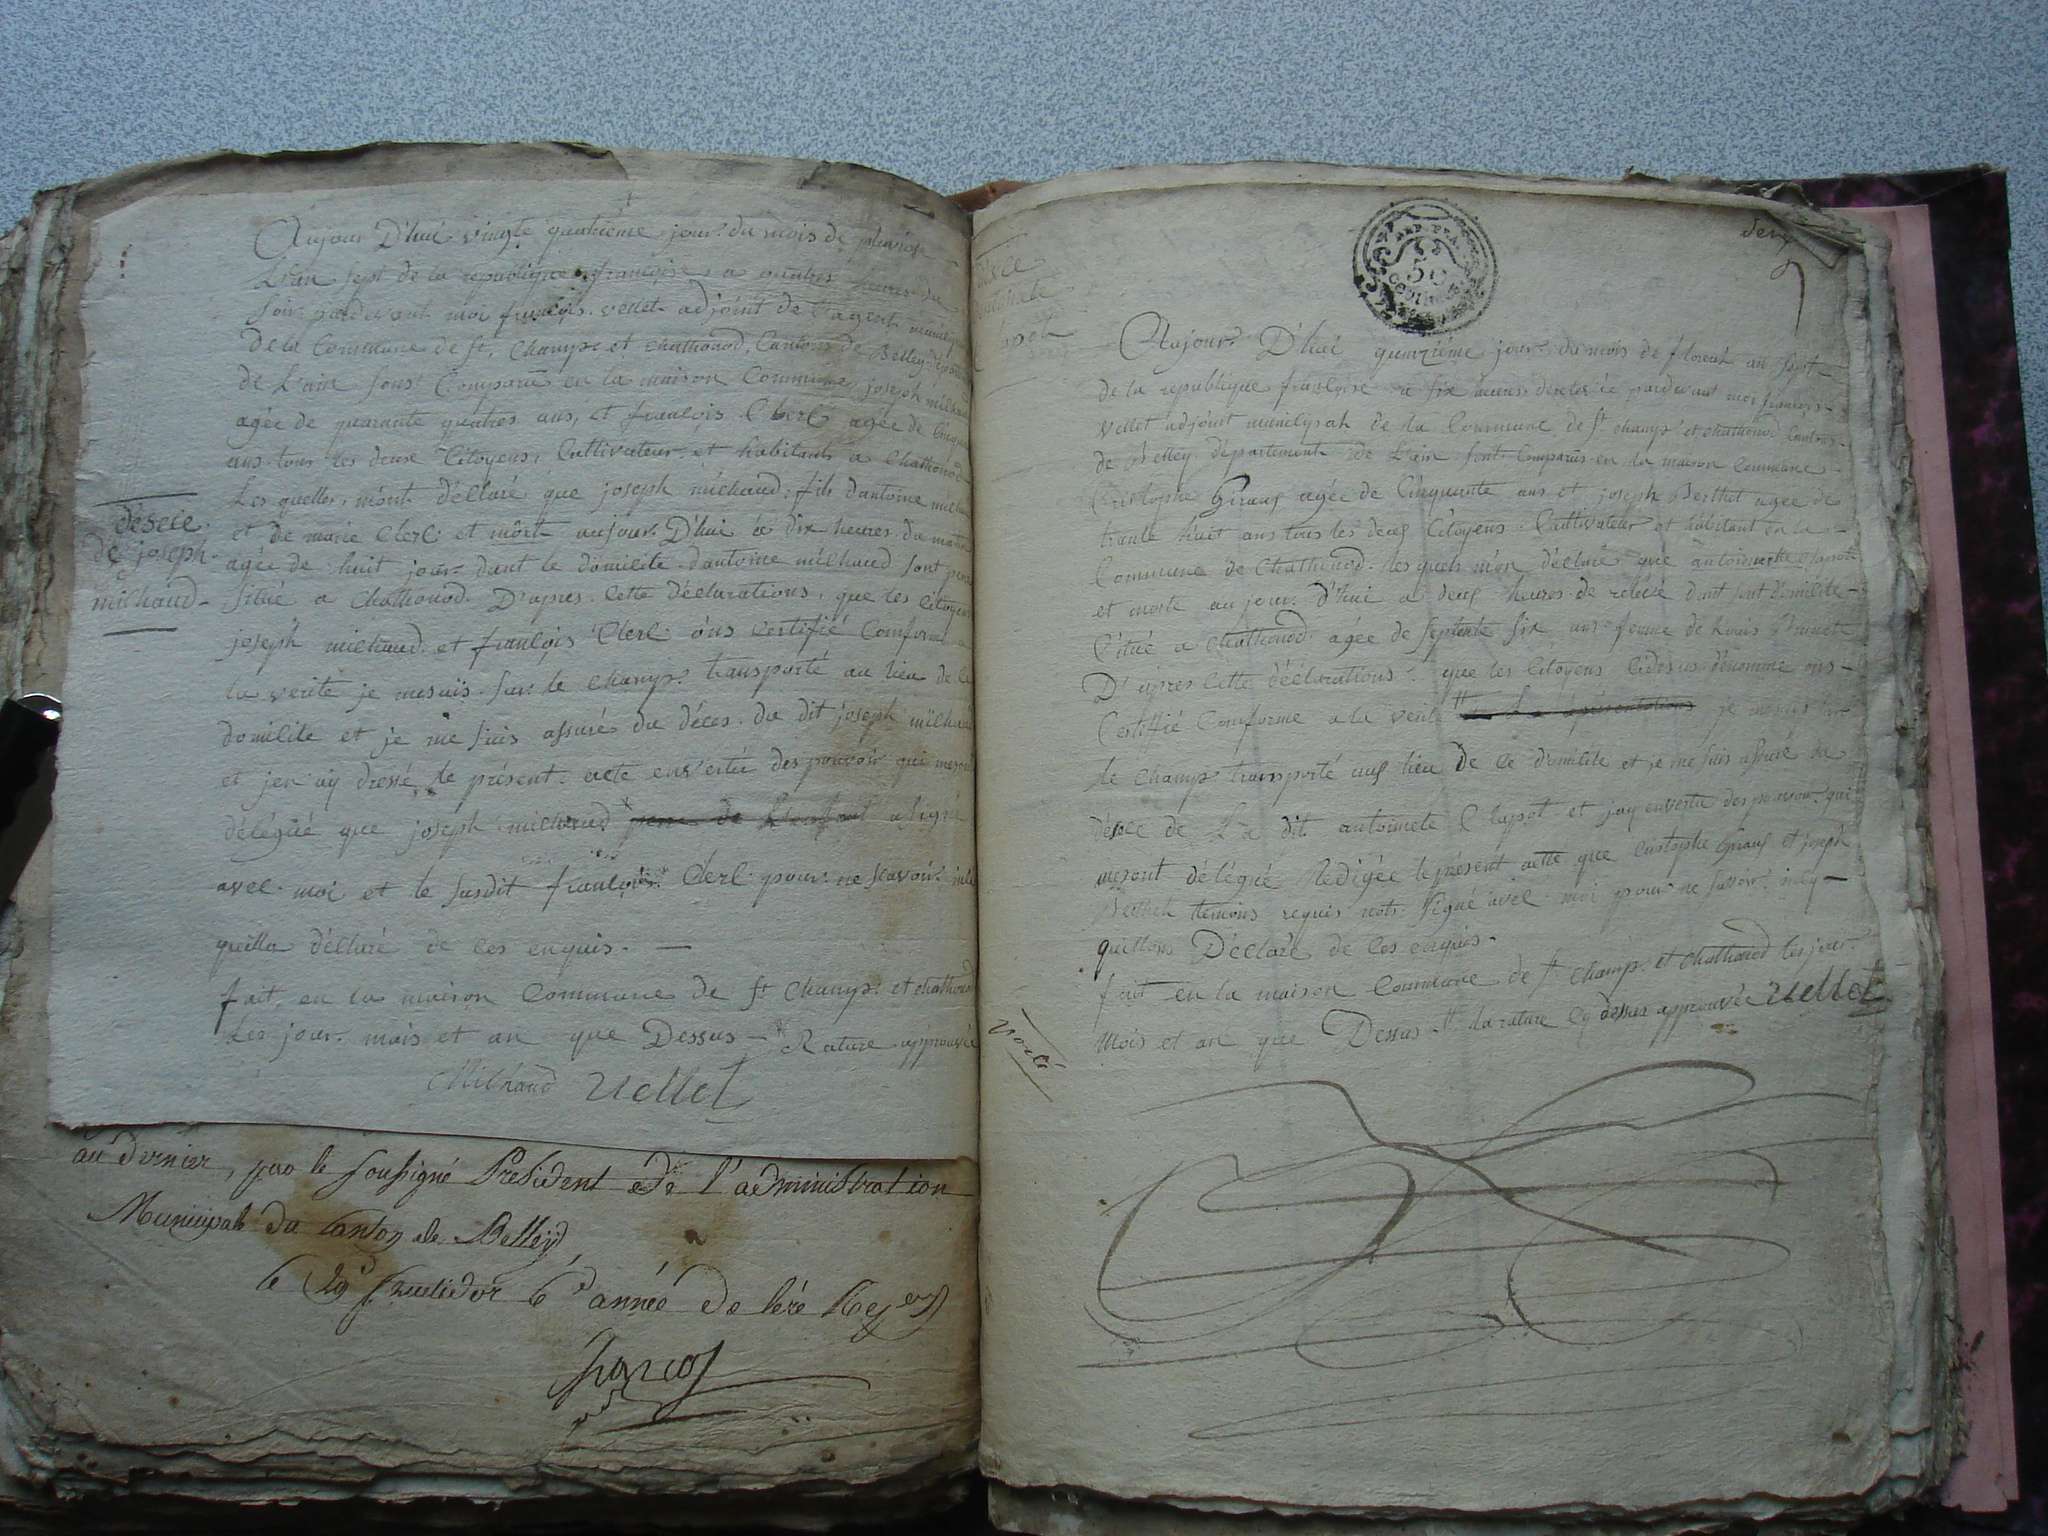 Aujour D'hui vingte quatrieme jour du mois de pluviose
L'an sept de la republique françoise a quatres heures du
soir pardevant moi françois vellet adjoint de l'agent
De la Commune de St. Champs et chathonod, Canton de Belley
de L'ain sont Comparû en la maison Commune joseph milhaud
agée de quarante quatres ans, et françois Clerl agée de Cinquante
ans tous les deux Citoyens, Cultivateur et habitants a Chathonod
Les quelles m'ont déclaré que joseph milhaud fils d'antoine milhaud
et de marie Clerl et môrt aujour D'hui a dix heures du matin
agée de huit jour dant le domicile d'antoine milhaud sont pere
situé a Chathonod. D'apres Cette déclarations, que les Citoyens
joseph milhaud et françois Clerl ons Certifié Comforme a
la verite je mesuis sur le champs transporté au lieu de ce
domilile et je me suis assurés du déces du dit joseph milhaud
et jen ay dressé le présent acte envertu des pouvoir qui mesont
délégué que joseph milhaud pere de Lenfant a signé
avec moi et le susdit françois Clerl pour ne scavoir
quilla déclaré de ces enquis. —
fait en la maison Commune de St Champs et chathonod
Les jour mois et an que Dessus — Rature approuvée
Milhaud vellet
désece
de joseph
milhaud
au dernier, par le soussigné Président de l'administration
Municipale du Canton de Belley
le 29e fructidor 6e année de l'ére Rep
deux
50
Aujour D'hui quinzieme jour du mois de floreal an sept
de la republique françoise a six heures pardevant moi françois
vellet adjoint de la Commune de St champs et chathonod Canton
de Belley département de L'ain sont Comparûs en la maison Commune
Cristophe Giraus agée de Cinquante ans et joseph Berthet agée de
trante huit ans tous les deus Citoyens Cultivateur et habitant en la
Commune de Chathonod les quels m'on déclaré que antoinette Clapot
et morte aujour d'hui a deus heures de relevé dant sont domilile
Citué a Chathonod agée de septente six ans femme de Louis
D'apres Cette déclarations que les Citoyens Cidesus dénomme ons
Certiffié Comforme a la verité je mesuis sur
le champs transporté aus lieu de ce domilile et je me suis assuré du
désece de La dit antoinete Clapot et jay envertu des pouvoir qui
mesont délégué Redigée le présent acte que Cristophe Giraus et joseph
Berthet temoins requis nots signé avec moi pour ne savoir
quillons Déclaré de ces enquis.
fait en la maison Commune de St champs et chathonod les jour
Mois et an que Dessus la rature Cy dessus approuvée vellet